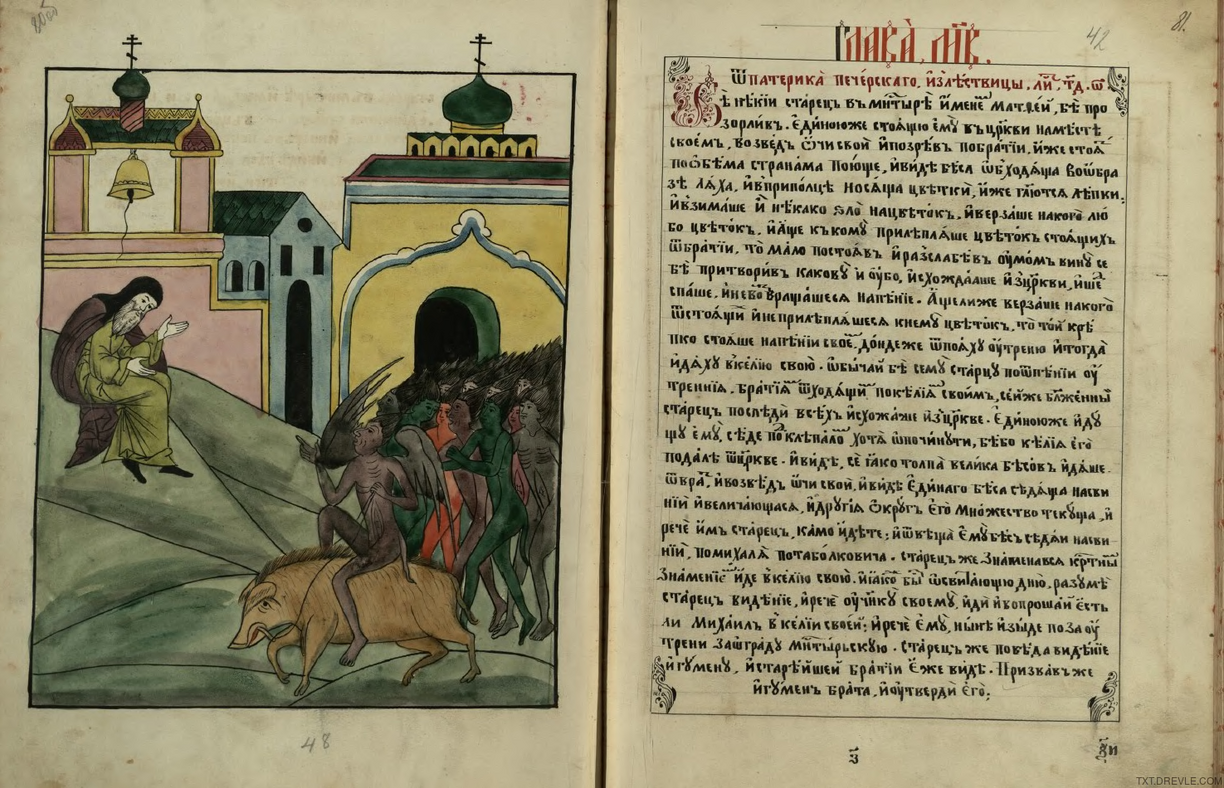 80об
48
Глава̀, м҃в.
42
81.
Ѿ патерика̀ пече́рскаго, и҆зл̾ѣ́ствицы. ли҃. т҃д. ѿ
Бѣ̀ нѣ́кїи ста́рецъ въ мн҃тырѣ̀ и҆́менеⷨ матѳеи, бѣ̀ про
зорли́въ. є҆ди́ною же стоѧ́щю є҆мꙋ̀ въ цр҃кви на мѣ́стѣ
свое́мъ, возве́дъ ѻ҆́чи свои̑ и҆ позрѣ́въ по бра́тїи, и҆́же стоѧ̀
по ѻ҆бѣ́ма страна́ма пою́ще, и҆ ви́дѣ бѣ́са ѡ҆бходѧ́ща во ѡ҆бра
зѣ лѧ́ха, и҆ в̾ припо́лцѣ носѧ́ща цвѣтки̑, и҆́же гл҃ю́тсѧ лѣ́пки:
и҆ взима́ше и҆ нѣ́како ѕло̀ на цвѣто́къ, и҆ верза́ше на кого̀ лю
бо цвѣто́къ, и҆ а҆́ще къ комꙋ̀ прилѣплѧ́ше цвѣто́къ стоѧ́щихъ
ѿ бра́тїи, то ма́ло постоѧ́въ и҆ разслабѣ́въ ᲂу҆мо́мъ винꙋ̀ се
бѣ̀ притвори́въ каковꙋ̀ и҆ ᲂу҆́бо, и҆схожда́аше и҆з̾ цр҃кви, и҆ шеⷣ
спа́ше, и҆ не возвраща́шесѧ на пѣ́нїе. А҆́ще ли же верза́ше на кого̀
ѿ стоѧ́щиⷯ и҆ не прилѣплѧ́шесѧ к нему цвѣто́къ, то то́й крѣ́
пко стоѧ́ше на пѣ́нїи свое́ⷨ, до́ндеже ѿпоѧ́хꙋ ᲂу҆́треню и҆ тогда̀
и҆дѧ́хꙋ в̾ ке́лїю свою̀. ѡ҆бы́чай бѣ̀ семꙋ̀ ста́рцꙋ по ѿпѣ́нїи ᲂу҆́
тренїѧ, бра́тїѧⷨ ѿходѧ́щиⷨ по ке́лїѧⷨ свои́мъ, се́й же бл҃же́нныи
ста́рецъ послѣди̑ всѣ́хъ и҆схожа́ше и҆з̾ цр҃кве. Є҆ди́ною же и҆дꙋ́
щꙋ є҆мꙋ̀, сѣ́де поⷣ клѣпа́лоⷨ, хотѧ̀ ѡ҆почи́нꙋти, бѣ́ бо ке́лїѧ є҆го̀
пода́лѣ ѿ цр҃кве. и҆ ви́дѣ, сѐ ꙗ҆́ко толпа̀ вели́ка бѣсо́въ и҆дѧ́ше
ѿ враⷮ, и҆ возве́дъ ѻ҆́чи свои̑, и҆ ви́дѣ є҆ди́наго бѣ́са сѣдѧ́ща на сви
нїи̑ и҆ велича́ющасѧ, и҆ дрꙋгі́ѧ ѻ҆́крꙋгъ є҆го̀ мно́жество текꙋ́ща, и҆
рече̂ и҆́мъ ста́рец, ка́мо и҆́дете; и҆ ѿвѣща̀ є҆мꙋ̀ бѣ́съ сѣдѧ́и на сви
нїи̑, по михаи́ла по табо́лковича. ста́рецъ же зна́менавсѧ крⷭ҇тныⷨ
зна́менїеⷨ и҆́де в̾ ке́лїю свою̀. и҆ ꙗ҆́ко бы́ⷭ ѡ҆свита́ющю дню̀, разꙋмѣ̀
ста́рецъ видѣ́нїе, и҆ речѐ ᲂу҆ч҃нкꙋ̀ своемꙋ̀, и҆дѝ и҆ вопроша́й є҆́сть
ли михаи́лъ в̾ ке́лїи свое́й: и҆ речѐ є҆мꙋ̀, ны́нѣ и҆зы́де по заᲂу҆́
трени за ѡ҆гра́дꙋ мн҃ты́рьскꙋю. ста́рецъ же повѣ́да видѣ́нїе
и҆гꙋ́менꙋ, и҆ старѣ́йшей бра́тїи є҆́же ви́дѣ. Призва́въ же
и҆гꙋ́менъ бра́та, и҆ ᲂу҆твердѝ є҆го̀:
TXT.DREVLE.COM